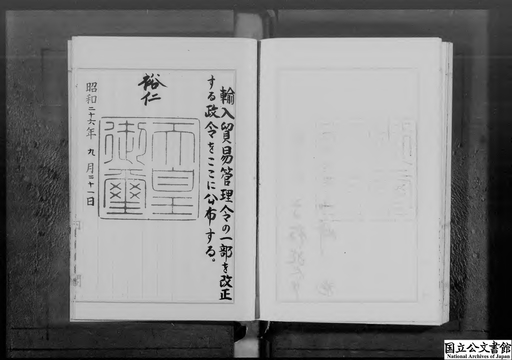 輸入貿易管理令の一部を改正
する政令をここに公布する。
裕仁
天皇
御璽
昭和二十六年九月二十一日
国立公文書館
National Archives of Japan